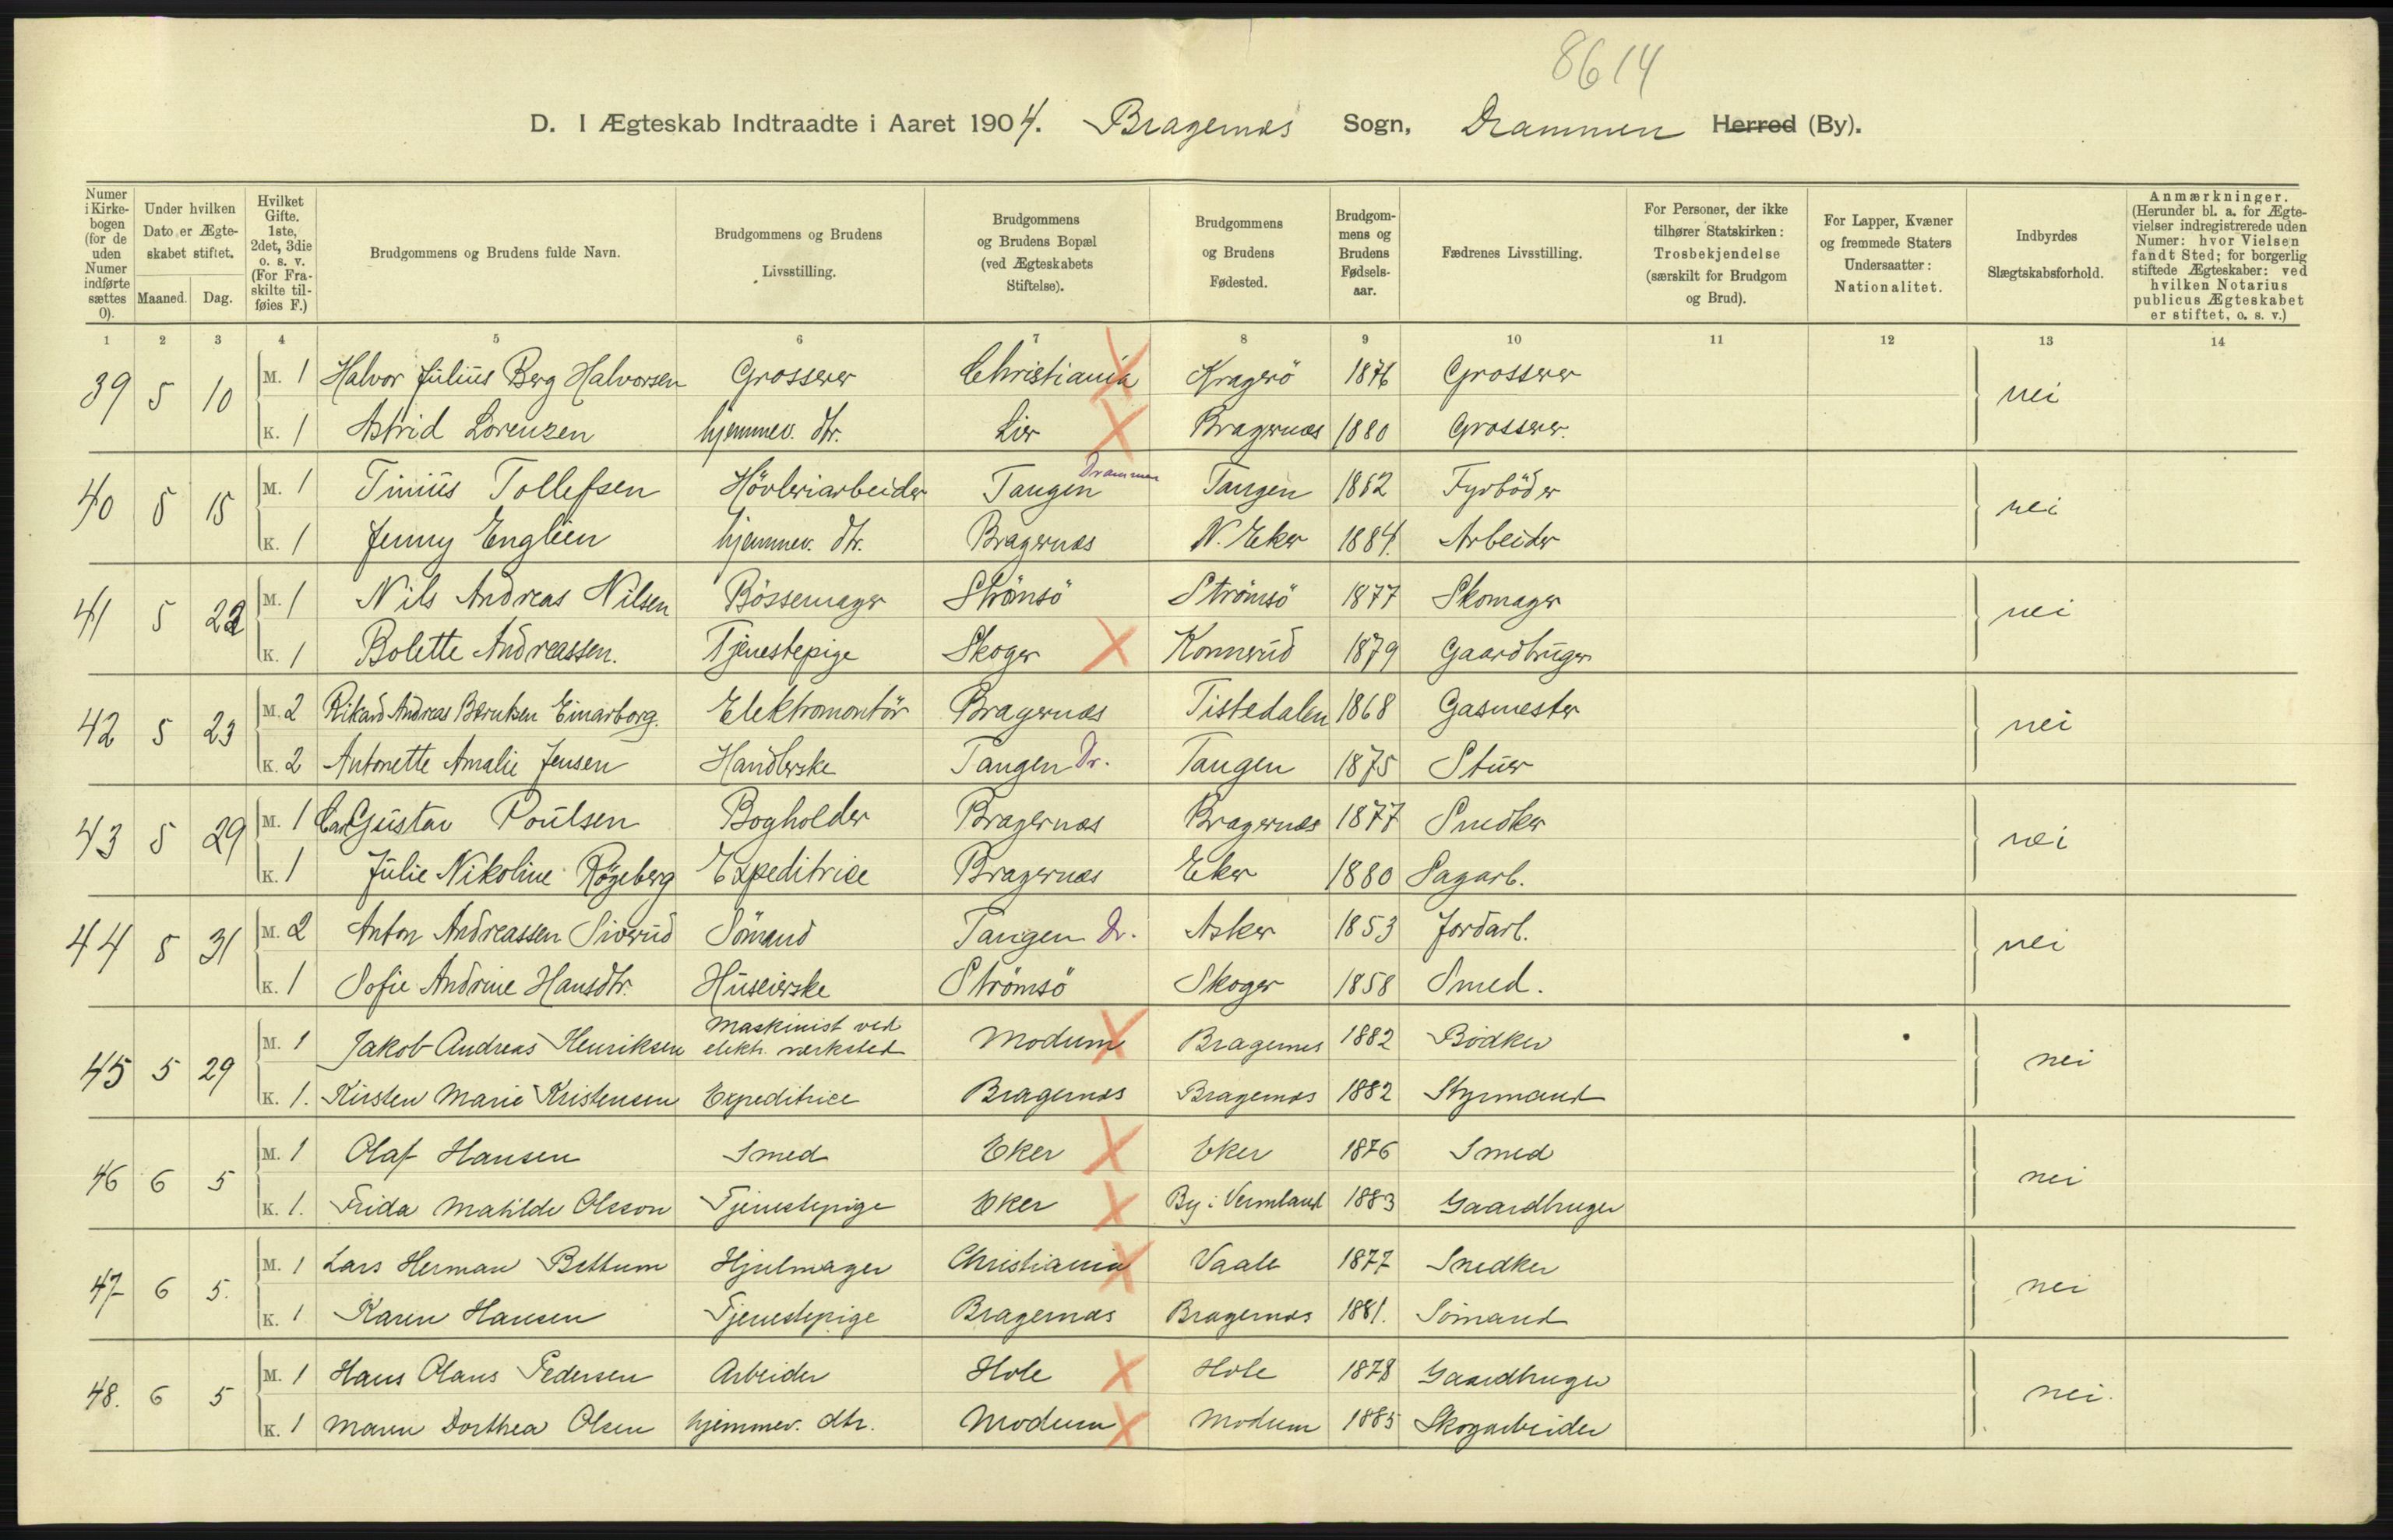 8614
D. I Ægteskab Indtraadte i Aaret 1904. Bragernæs Sogn, Drammen Herred (By).
Numer i Kirkebogen (for de uden Numer indførte sættes 0).
Under hvilken Dato er Ægteskabet stiftet.
Maaned. Dag.
Hvilket Gifte. 1ste, 2det, 3die o. s. v. (For Fraskilte tilføies F.)
Brudgommens og Brudens fulde Navn.
Brudgommens og Brudens Livsstilling.
Brudgommens og Brudens Bopæl (ved Ægteskabets Stiftelse).
Brudgommens og Brudens Fødested.
Brudgommens og Brudens Fødselsaar.
Fædrenes Livsstilling.
For Personer, der ikke tilhører Statskirken: Trosbekjendelse (særskilt for Brudgom og Brud).
For Lapper, Kvæner og fremmede Staters Undersaatter: Nationalitet.
Indbyrdes Slægtskabsforhold.
Anmærkninger. (Herunder bl. a. for Ægtevielser indregistrerede uden Numer: hvor Vielsen fandt Sted; for borgerlig stiftede Ægteskaber: ved hvilken Notarius publicus Ægteskabet er stiftet, o. s. v.)
1 2 3 4 5 6 7 8 9 10 11 12 13 14
39 5 10 M. 1 Halvor Julius Berg Halvorsen Grosserer Christiania Kragerö 1876 Grosserer nei
K. 1 Astrid Lorenzen hjemmev. dtr. Lier Bragernæs 1880 Grosserer.
40 5 15 M. 1 Tinius Tollefsen Hövleriarbeider Tangen Drammen Tangen 1882 Fyrböder nei
K. 1 Jenny Englien hjemmev. dtr. Bragernæs N. Eker 1884. Arbeider
41 5 22 M. 1 Nils Andreas Nilsen Bössemager Strömsö Strömsö 1877 Skomager nei
K. 1 Bolette Andreassen. Tjenestepige Skoger Konnerud 1879 Gaardbruger
42 5 23 M. 2 Rikard Andreas Berntsen Einarborg. Elektromontör Bragernæs Tistedalen 1868 Gasmester nei
K. 2 Antonette Amalie Jensen Handlerske Tangen Dr. Tangen 1875 Stuer
43 5 29 M. 1 Carl Gustav Poulsen Bogholder Bragernæs Bragernæs 1877 Snedker nei
K. 1 Julie Nikoline Rögeberg Expeditrice Bragernæs Eker 1880 Sagarb.
44 5 31 M. 2 Anton Andreassen Siverud Sömand Tangen Dr. Asker 1853 Jordarb. nei
K. 1 Sofie Andrine Hansdtr. Huseierske Strömsö Skoger 1858 Smed.
45 5 29 M. 1 Jakob Andreas Henriksen Maskinist ved elektr. værksted Modum Bragernes 1882 Bödker nei
K. 1. Kirsten Marie Kristensen Expeditrice Bragernæs Bragernæs 1882 Styrmand
46 6 5 M. 1 Olaf Hansen Smed Eker Eker 1876 Smed nei
K. 1. Frida Matilde Olsson Tjenestepige Eker By i Vermland 1883 Gaardbruger
47 6 5. M. 1 Lars Herman Bettum Hjulmager Christiania Vaale 1877 Snedker nei
K. 1 Karen Hansen Tjenestepige Bragernæs Bragernæs 1881. Sömand
48. 6 5 M. 1 Hans Olaus Pedersen Arbeider Hole Hole 1878 Gaardbruger nei.
K. 1 Maren Dorthea Olsen hjemmev. dtr. Modum Modum 1885 Skogarbeider